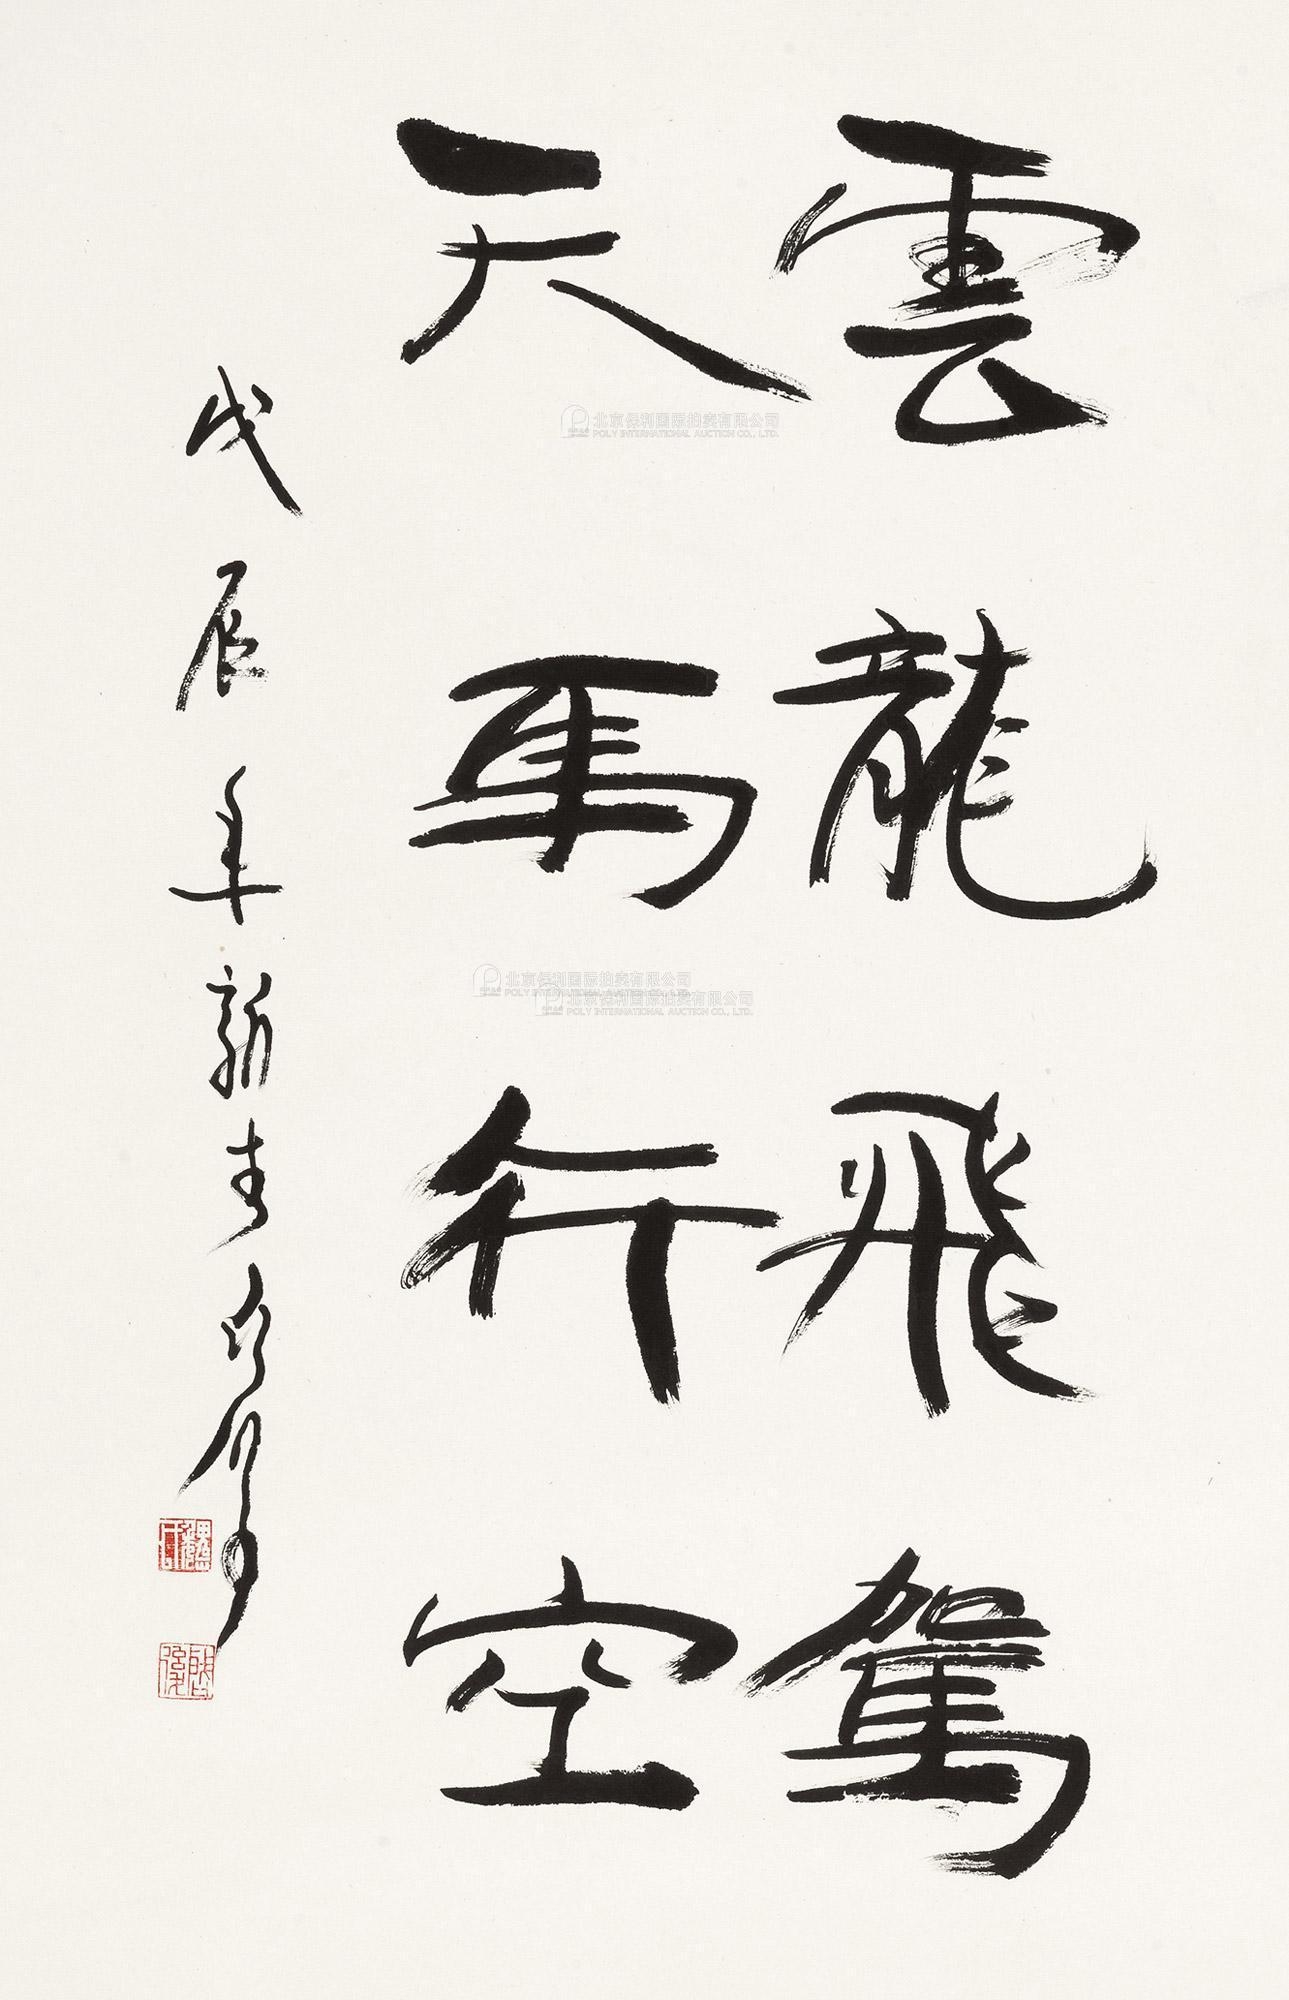 雲龍飛駕
天馬行空
戊辰年新春
北京保利国际拍卖有限公司
POLY INTERNATIONAL AUCTION CO., LTD.
北京保利国际拍卖有限公司
POLY INTERNATIONAL AUCTION CO., LTD.
北京保利国际拍卖有限公司
POLY INTERNATIONAL AUCTION CO., LTD.